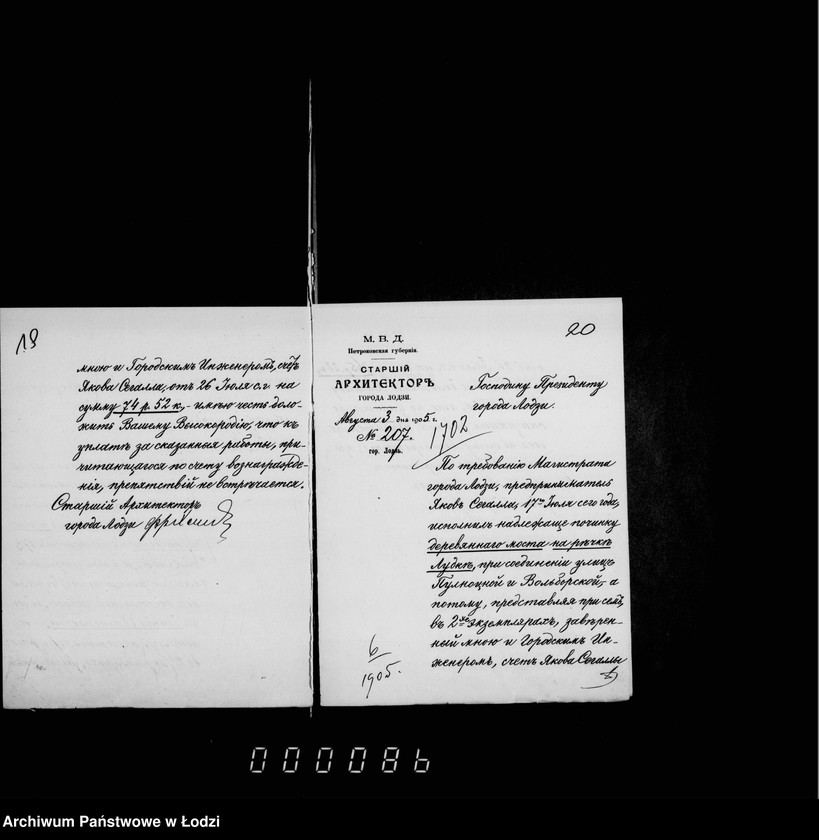 19
мною и Городскимъ Инженеромъ, счетъ
Якова Сегалла, отъ 26 Іюля с.г. на
сумму 74 р. 52 к., - имѣю честь доло-
жить Вашему Высокородію, что къ
уплатѣ за сказанныя работы, при-
читающагося по счету вознагражде-
нія, препятствій не встрѣчается.
Старшій Архитекторъ
города Лодзи
20
М. В. Д.
Петроковская губернія.
СТАРШІЙ
АРХИТЕКТОРЪ
ГОРОДА ЛОДЗИ.
Августа 3 дня 1905 г.
№ 207.
гор. Лодзь.
1702
Господину Президенту
города Лодзи.
По требованію Магистрата
города Лодзи, предприниматель
Яковъ Сегалла, 17го Іюля сего года,
исполнилъ надлежаще починку
деревяннаго моста на рѣчкѣ
Лудкѣ, при соединеніи улицъ
Пулноцной и Вольборской, - а
потому, представляя при семъ,
въ 2хъ экземплярахъ, завѣрен-
ный мною и Городскимъ Ин-
женеромъ, счетъ Якова Сегаллы
6
1905.
000086
Archiwum Państwowe w Łodzi